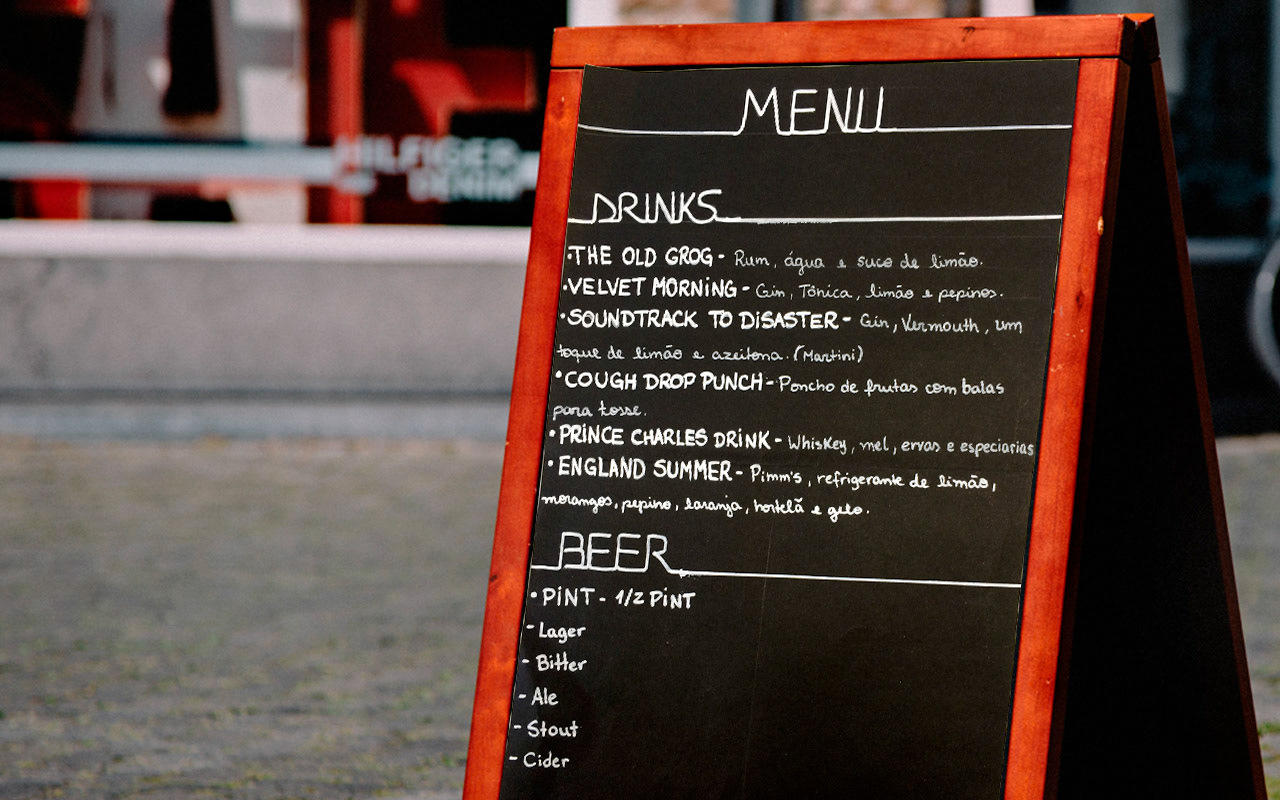 HILFIGER
DENIM
MENU
DRINKS
•THE OLD GROG - Rum, água e suco de limão.
•VELVET MORNING - Gin, Tônica, limão e pepinos.
•SOUNDTRACK TO DISASTER - Gin, Vermouth, um
toque de limão e azeitona. (Martini)
•COUGH DROP PUNCH - Poncho de frutas com balas
para tosse.
•PRINCE CHARLES DRINK - Whiskey, mel, ervas e especiarias
•ENGLAND SUMMER - Pimm's, refrigerante de limão,
morangos, pepino, laranja, hortelã e gelo.
BEER
•PINT - 1/2 PINT
- Lager
- Bitter
- Ale
- Stout
- Cider